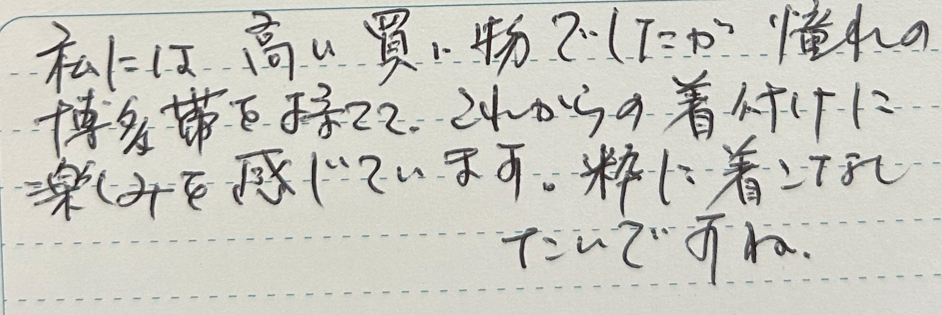 私には高い買い物でしたが憧れの
博多帯を持てて、これからの着付けに
楽しみを感じています。粋に着こなし
たいですね。